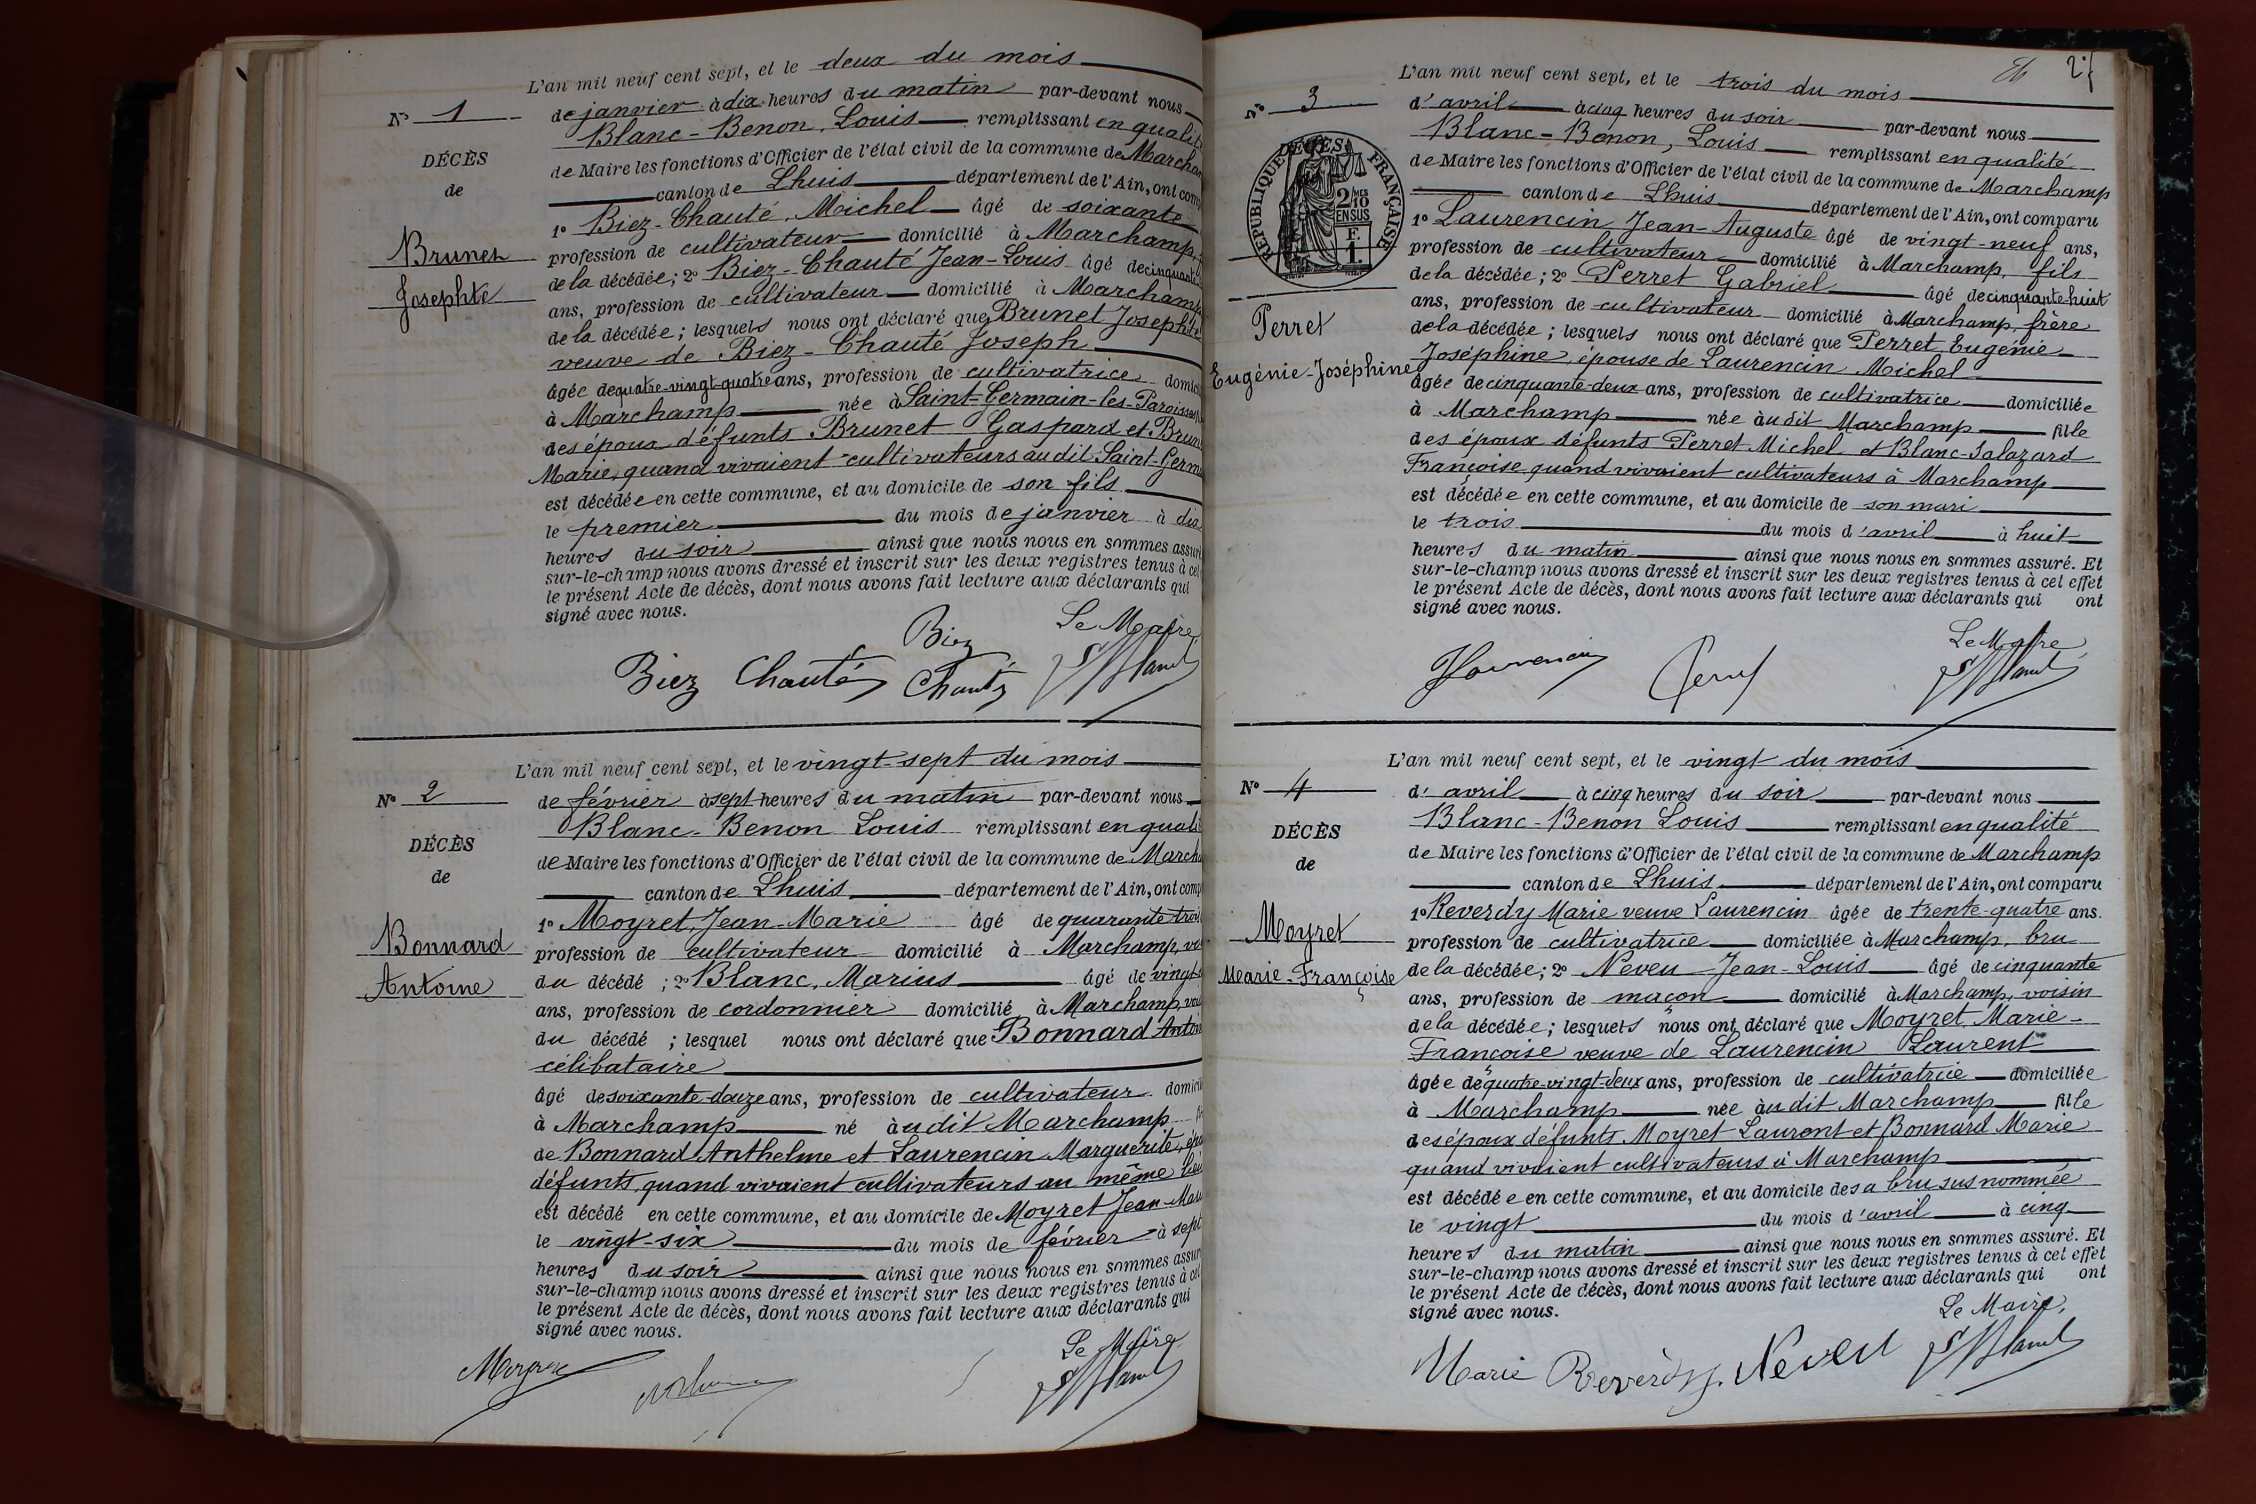 L'an mil neuf cent sept, et le deux du mois
N° 1
de janvier à dix heures du matin par-devant nous
Blanc-Benon, Louis remplissant en qualité
DÉCÈS
de Maire les fonctions d'Officier de l'état civil de la commune de Marcham
de
canton de Lhuis département de l'Ain, ont com
1° Biez-Chauté, Michel âgé de soixante
Brunet
profession de cultivateur domicilié à Marchamp,
de la décédée; 2° Biez-Chauté Jean-Louis âgé de cinquante
Josephte
ans, profession de cultivateur domicilié à Marchamp
de la décédée; lesquels nous ont déclaré que Brunet Josephte
veuve de Biez-Chauté Joseph
âgée de quatre-vingt-quatre ans, profession de cultivatrice domici
à Marchamp née à Saint-Germain-les-Paroisses
des époux défunts Brunet Gaspard et Brun
Marie, quand vivaient cultivateurs audit Saint-Germa
est décédée en cette commune, et au domicile de son fils
le premier du mois de janvier à dix
heures du soir ainsi que nous nous en sommes assuré
sur-le-champ nous avons dressé et inscrit sur les deux registres tenus à cet
le présent Acte de décès, dont nous avons fait lecture aux déclarants qui
signé avec nous.
Le Maire,
Biez Chauté Biez Chauté
L'an mil neuf cent sept, et le vingt-sept du mois
N° 2
de février à sept heures du matin par-devant nous
Blanc-Benon Louis remplissant en quali
DÉCÈS
de Maire les fonctions d'Officier de l'état civil de la commune de Marcha
de
canton de Lhuis département de l'Ain, ont comp
1° Moyret, Jean-Marie âgé de quarante trois
Bonnard
profession de cultivateur domicilié à Marchamp, vo
Antoine
du décédé; 2° Blanc, Marius âgé de vingt-
ans, profession de cordonnier domicilié à Marchamp, voi
du décédé; lesquel nous ont déclaré que Bonnard Antoine
célibataire
âgé de soixante-douze ans, profession de cultivateur domicili
à Marchamp né à udit Marchamp
de Bonnard Anthelme et Laurencin Marguerite, épo
défunts, quand vivaient cultivateurs au même lieu
est décédé en cette commune, et au domicile de Moyret Jean-Marie
le vingt-six du mois de février à sept
heures du soir ainsi que nous nous en sommes assur
sur-le-champ nous avons dressé et inscrit sur les deux registres tenus à cet
le présent Acte de décès, dont nous avons fait lecture aux déclarants qui
signé avec nous.
Le Maire
27
L'an mil neuf cent sept, et le trois du mois
N° 3
d'avril à cinq heures du soir par-devant nous
Blanc-Benon, Louis remplissant en qualité
DÉCÈS
RÉPUBLIQUE FRANÇAISE
2/10 MES
EN SUS
F.
1.
de Maire les fonctions d'Officier de l'état civil de la commune de Marchamp
canton de Lhuis département de l'Ain, ont comparu
1° Laurencin, Jean-Auguste âgé de vingt-neuf ans,
profession de cultivateur domicilié à Marchamp, fils
de la décédée; 2° Perret Gabriel âgé de cinquante-huit
Perret
ans, profession de cultivateur domicilié à Marchamp, frère
de la décédée; lesquels nous ont déclaré que Perret, Eugénie
Eugénie-Joséphine
Joséphine, épouse de Laurencin Michel
âgée de cinquante-deux ans, profession de cultivatrice domiciliée
à Marchamp née àudit Marchamp fille
des époux défunts Perret Michel et Blanc-Salazard
Françoise, quand vivaient cultivateurs à Marchamp
est décédée en cette commune, et au domicile de son mari
le trois du mois d'avril à huit
heures du matin ainsi que nous nous en sommes assuré. Et
sur-le-champ nous avons dressé et inscrit sur les deux registres tenus à cet effet
le présent Acte de décès, dont nous avons fait lecture aux déclarants qui ont
signé avec nous.
Le Maire,
L'an mil neuf cent sept, et le vingt du mois
N° 4
d'avril à cinq heures du soir par-devant nous
Blanc-Benon Louis remplissant en qualité
DÉCÈS
de Maire les fonctions d'Officier de l'état civil de la commune de Marchamp
de
canton de Lhuis département de l'Ain, ont comparu
1° Reverdy Marie veuve Laurencin âgée de trente-quatre ans.
Moyret
profession de cultivatrice domiciliée à Marchamp, bru
Marie-Françoise
de la décédée; 2° Neveu Jean-Louis âgé de cinquante
ans, profession de maçon domicilié à Marchamp, voisin
de la décédée; lesquels nous ont déclaré que Moyret, Marie-
Françoise veuve de Laurencin Laurent
âgée de quatre-vingt-deux ans, profession de cultivatrice domiciliée
à Marchamp née àudit Marchamp fille
des époux défunts Moyret Laurent et Bonnard Marie
quand vivaient cultivateurs à Marchamp
est décédée en cette commune, et au domicile de sa bru sus nommée
le vingt du mois d'avril à cinq
heures du matin ainsi que nous nous en sommes assuré. Et
sur-le-champ nous avons dressé et inscrit sur les deux registres tenus à cet effet
le présent Acte de décès, dont nous avons fait lecture aux déclarants qui ont
signé avec nous.
Le Maire,
Marie Reverdy. Neveu